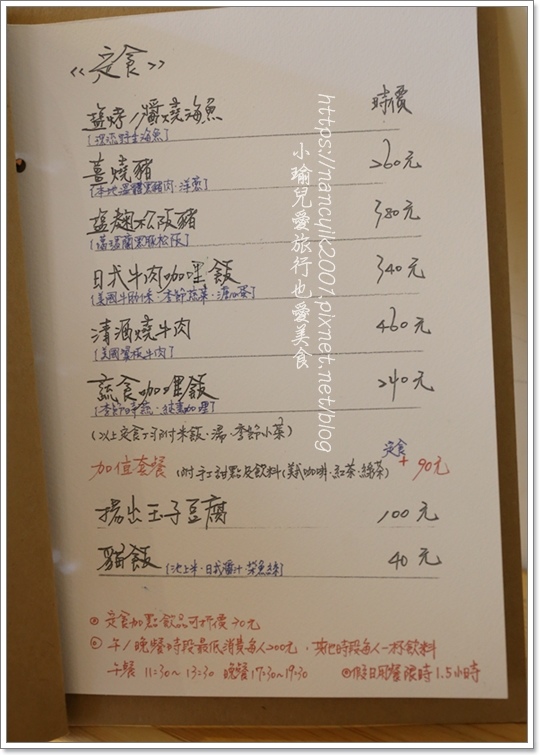 <<定食>>
塩烤/醬燒海魚 時價
薑燒豬 260元
塩麴松阪豬 380元
日式牛肉咖哩飯 340元
清酒燒牛肉 460元
[美國雪板牛肉]
蔬食咖哩飯 240元
(以上定食可附米飯·湯·季節小菜)
加值套餐 (附手工甜點及飲料(美式咖啡·紅茶·綠茶) 定食+90元
揚出玉子豆腐 100元
貓飯 [池上米·日式醬汁·柴魚絲] 40元
◎定食加點飲品可折價30元
◎午/晚餐時段最低消費每人200元,其他時段每人一杯飲料
午餐 11:30~13:30 晚餐 17:30~19:30 ◎假日用餐限時1.5小時
https://nancylik2001.pixnet.net/blog
小瑜兒愛旅行也愛美食